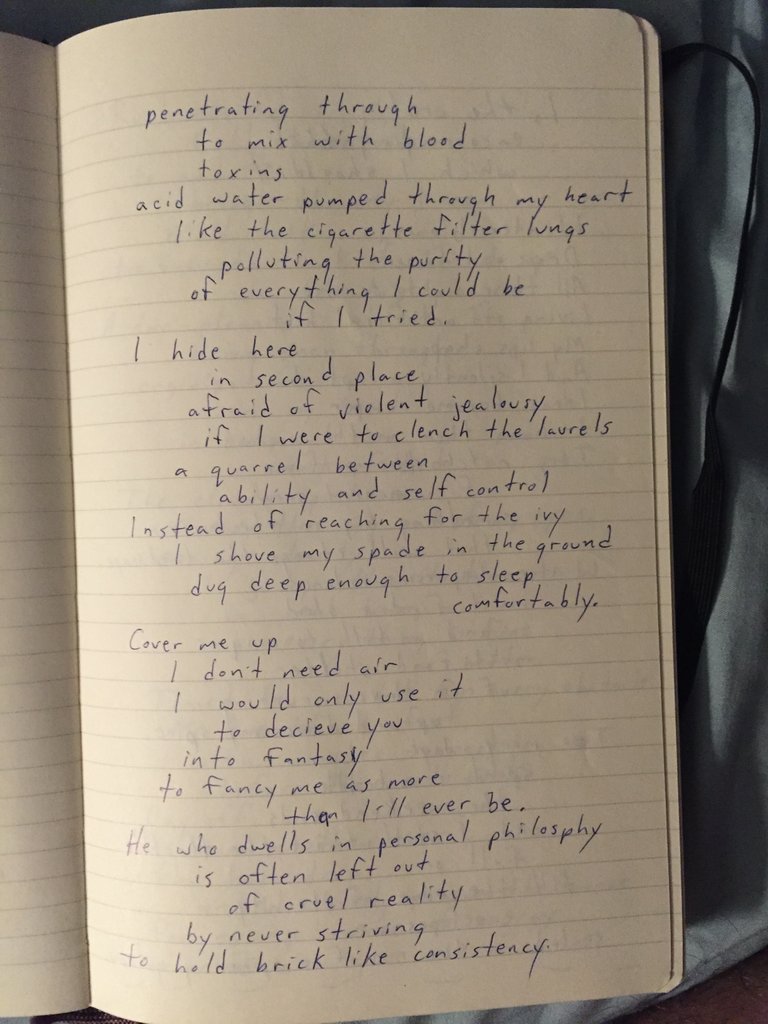 penetrating through
to mix with blood
toxins
acid water pumped through my heart
like the cigarette filter lungs
polluting the purity
of everything I could be
if I tried.
I hide here
in second place
afraid of violent jealousy
if I were to clench the laurels
a quarrel between
ability and self control
Instead of reaching for the ivy
I shove my spade in the ground
dug deep enough to sleep
comfortably.
Cover me up
I don't need air
I would only use it
to decieve you
into fantasy
to fancy me as more
then I'll ever be.
He who dwells in personal philosphy
is often left out
of cruel reality
by never striving
to hold brick like consistency.